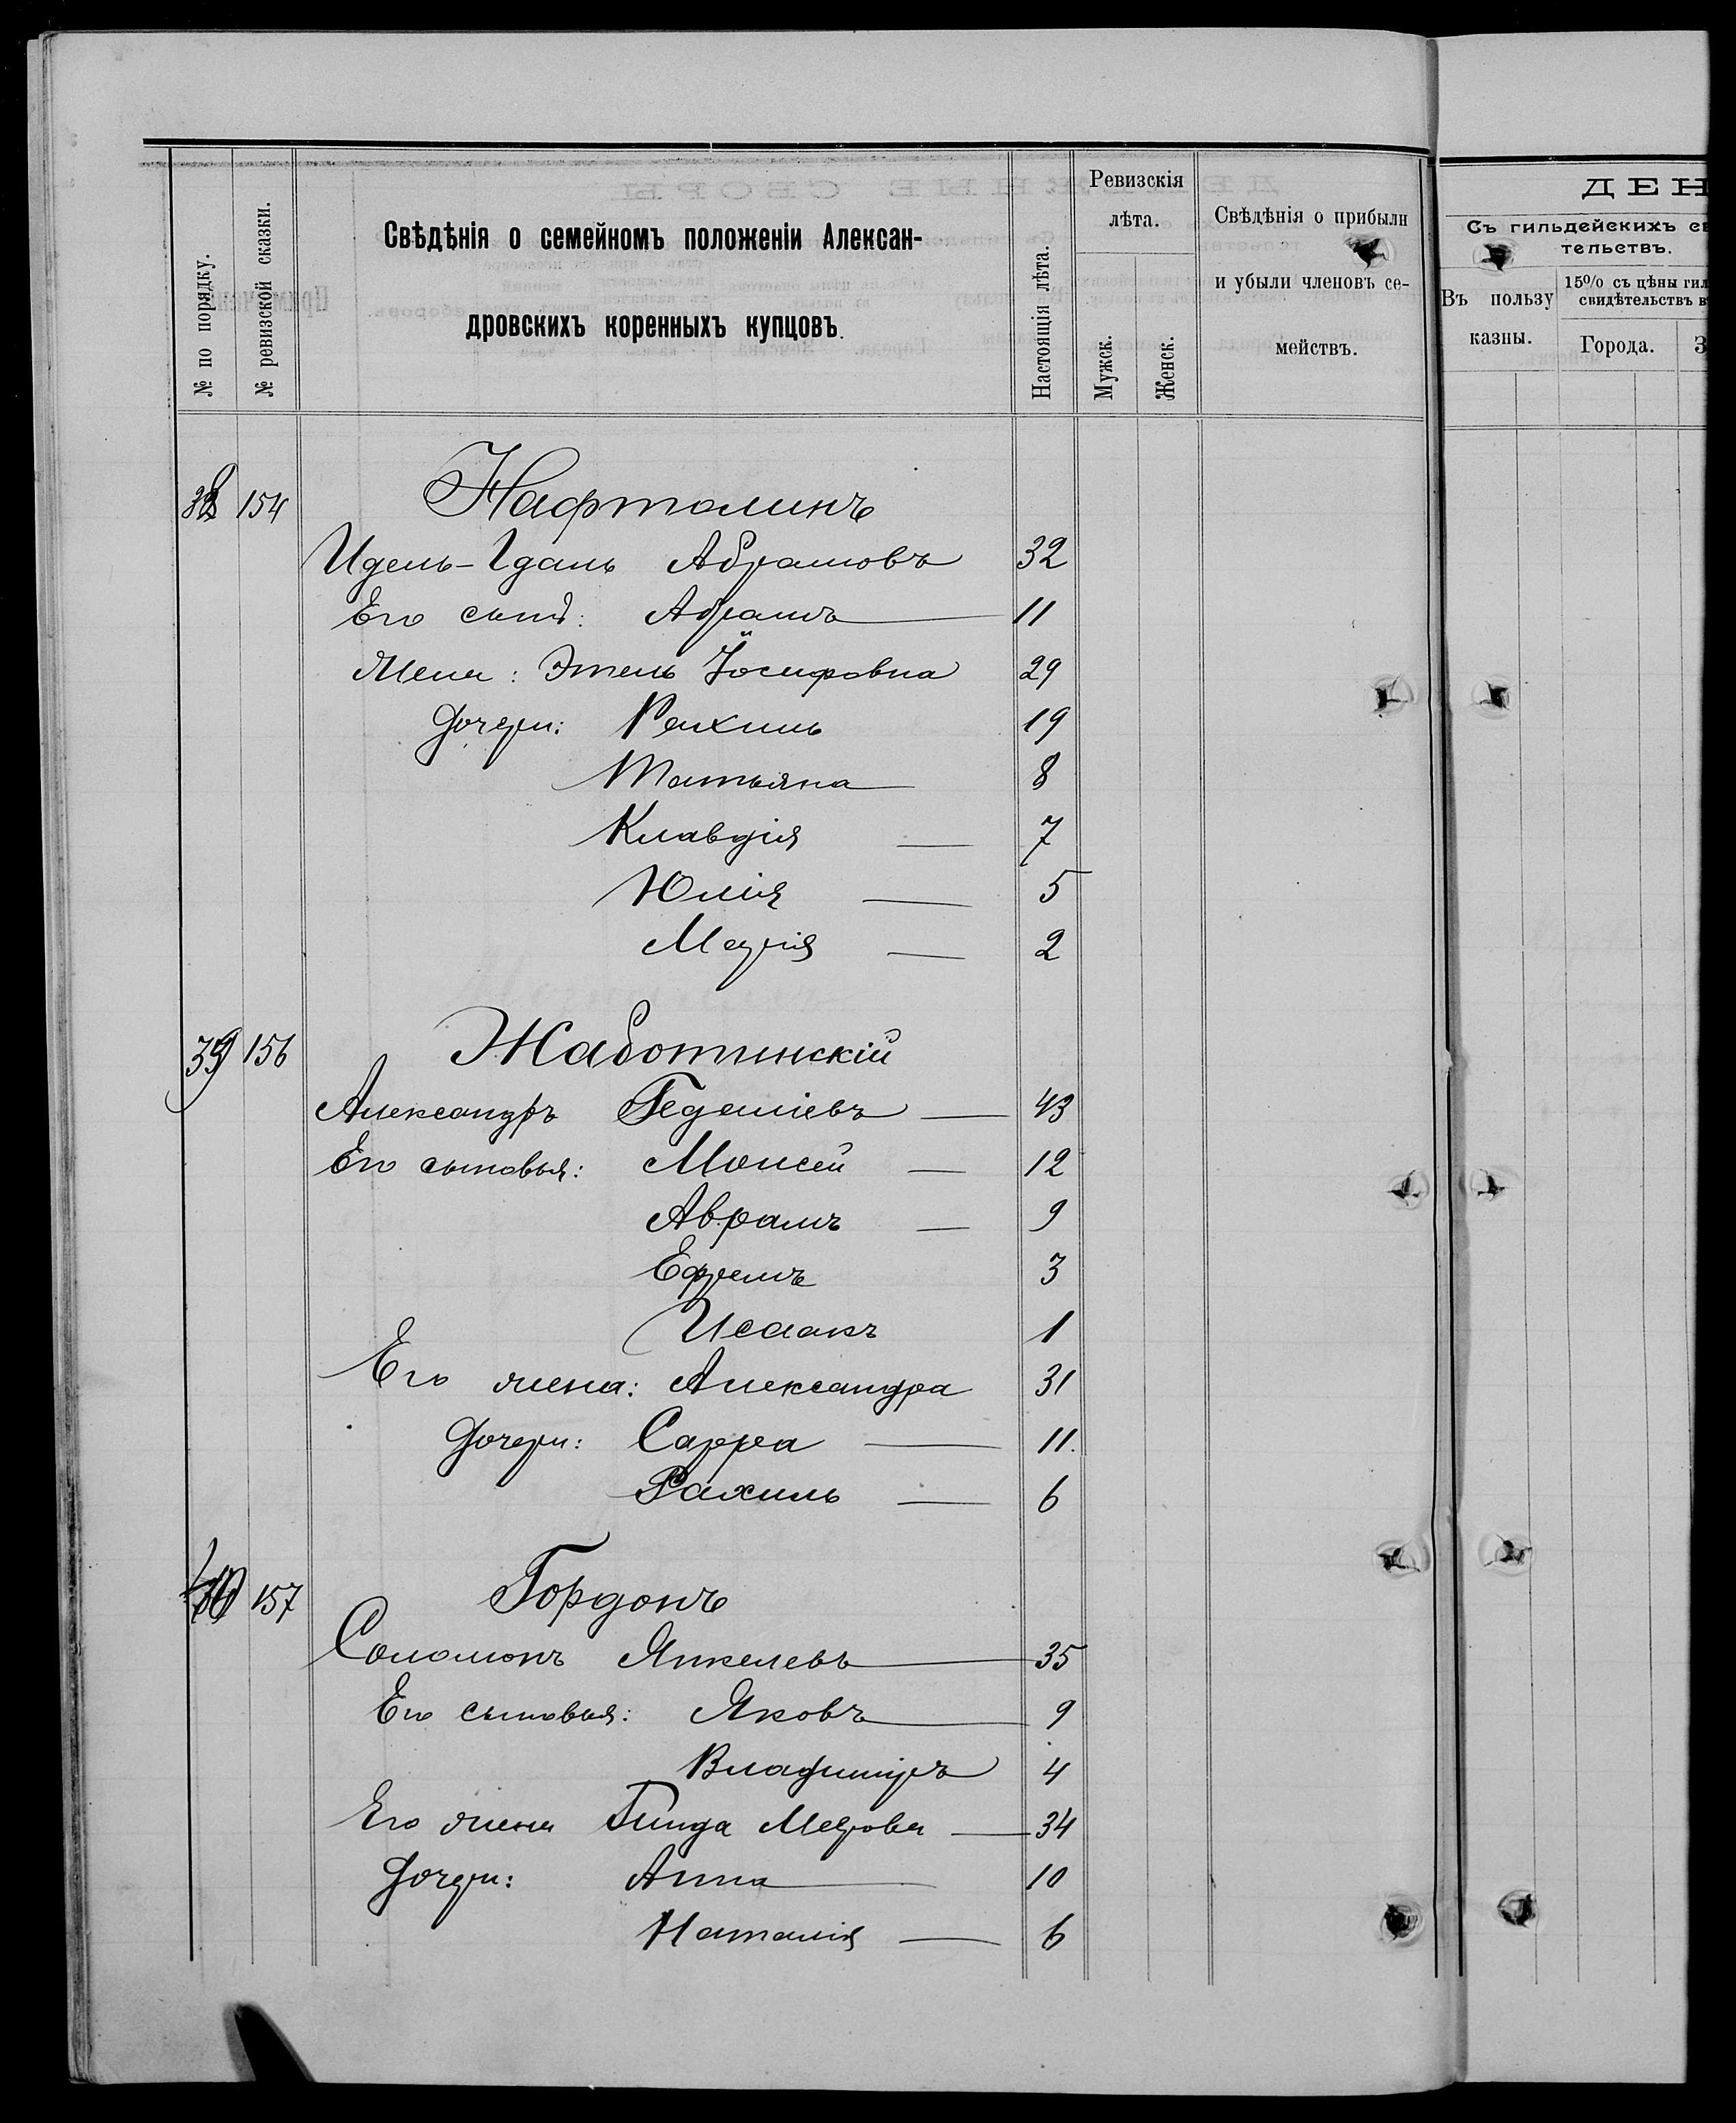 № по порядку.
№ ревизской сказки.
Свѣдѣнія о семейномъ положеніи Алексан-
дровскихъ коренныхъ купцовъ.
Настоящія лѣта.
Ревизскія
лѣта.
Мужск.
Женск.
Свѣдѣнія о прибыли
и убыли членовъ се-
мействъ.
38 154 Нафталинъ
Идель-Ідаль Абрамовъ 32
Его сынъ: Абрамъ 11
Жена: Этель Іосифовна 29
Дочери: Рахиль 19
Татьяна 8
Клавдія — 7
Юлія — 5
Марія — 2
39 156 Жаботинскій
Александръ Гедаліевъ — 43
Его сыновья: Моисей — 12
Аврамъ — 9
Ефремъ 3
Исаакъ 1
Его жена: Александра 31
Дочери: Сарра — 11.
Рахиль — 6
40 157 Гордонъ
Соломонъ Янкелевъ — 35
Его сыновья: Яковъ — 9
Владиміръ 4
Его жена Гинда Меерова — 34
Дочери: Анна — 10
Наталія — 6
ДЕН
Съ гильдейскихъ св
тельствъ.
Въ пользу
казны.
15% съ цѣны гил
свидѣтельствъ в
Города.
З